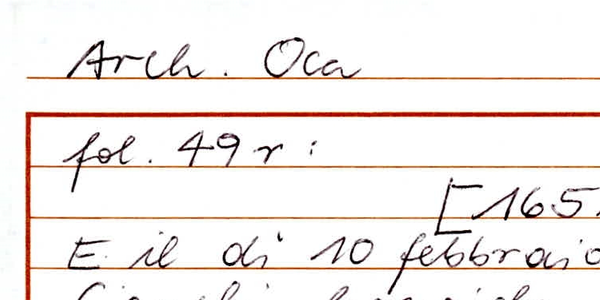 Arch. Oca
fol. 49 r :
[165
E il di 10 febbraio